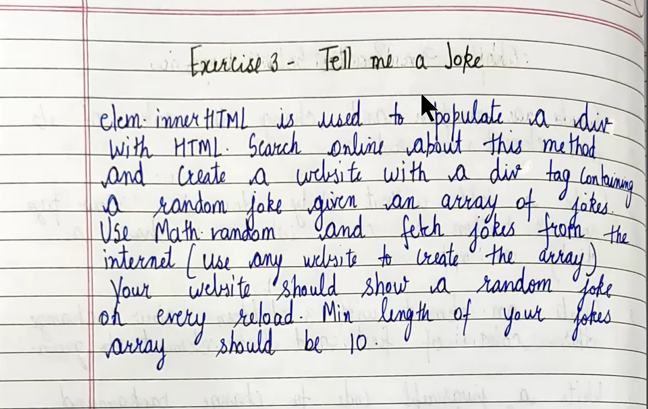 Exercise 3 - Tell me a Joke
elem.innerHTML is used to populate a div
with HTML. Search online about this method
and create a website with a div tag containing
a random joke given an array of jokes.
Use Math.random and fetch jokes from the
internet (use any website to create the array)
Your website should show a random joke
on every reload. Min length of your jokes
array should be 10.